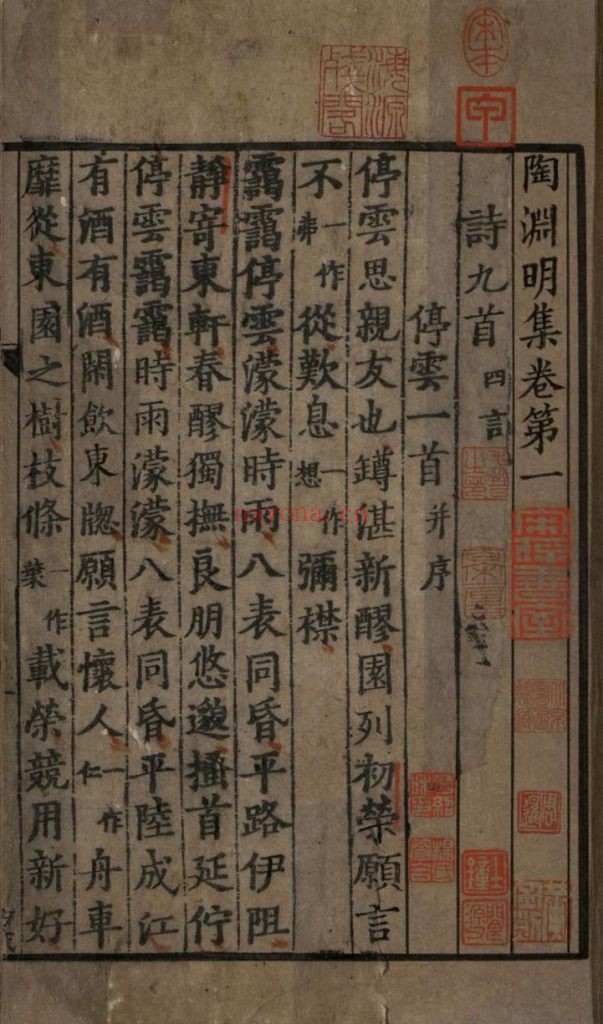 宋本
甲
海源殘閣
陶淵明集卷第一
詩九首 四言
停雲一首 并序
停雲思親友也罇湛新醪園列初榮願言
不一作弗從歎息一作想彌襟
靄靄停雲濛濛時雨八表同昏平路伊阻
靜寄東軒春醪獨撫良朋悠邈搔首延佇
停雲靄靄時雨濛濛八表同昏平陸成江
有酒有酒閑飲東牕願言懷人一作仁舟車
靡從東園之樹枝條一作葉載榮競用新好